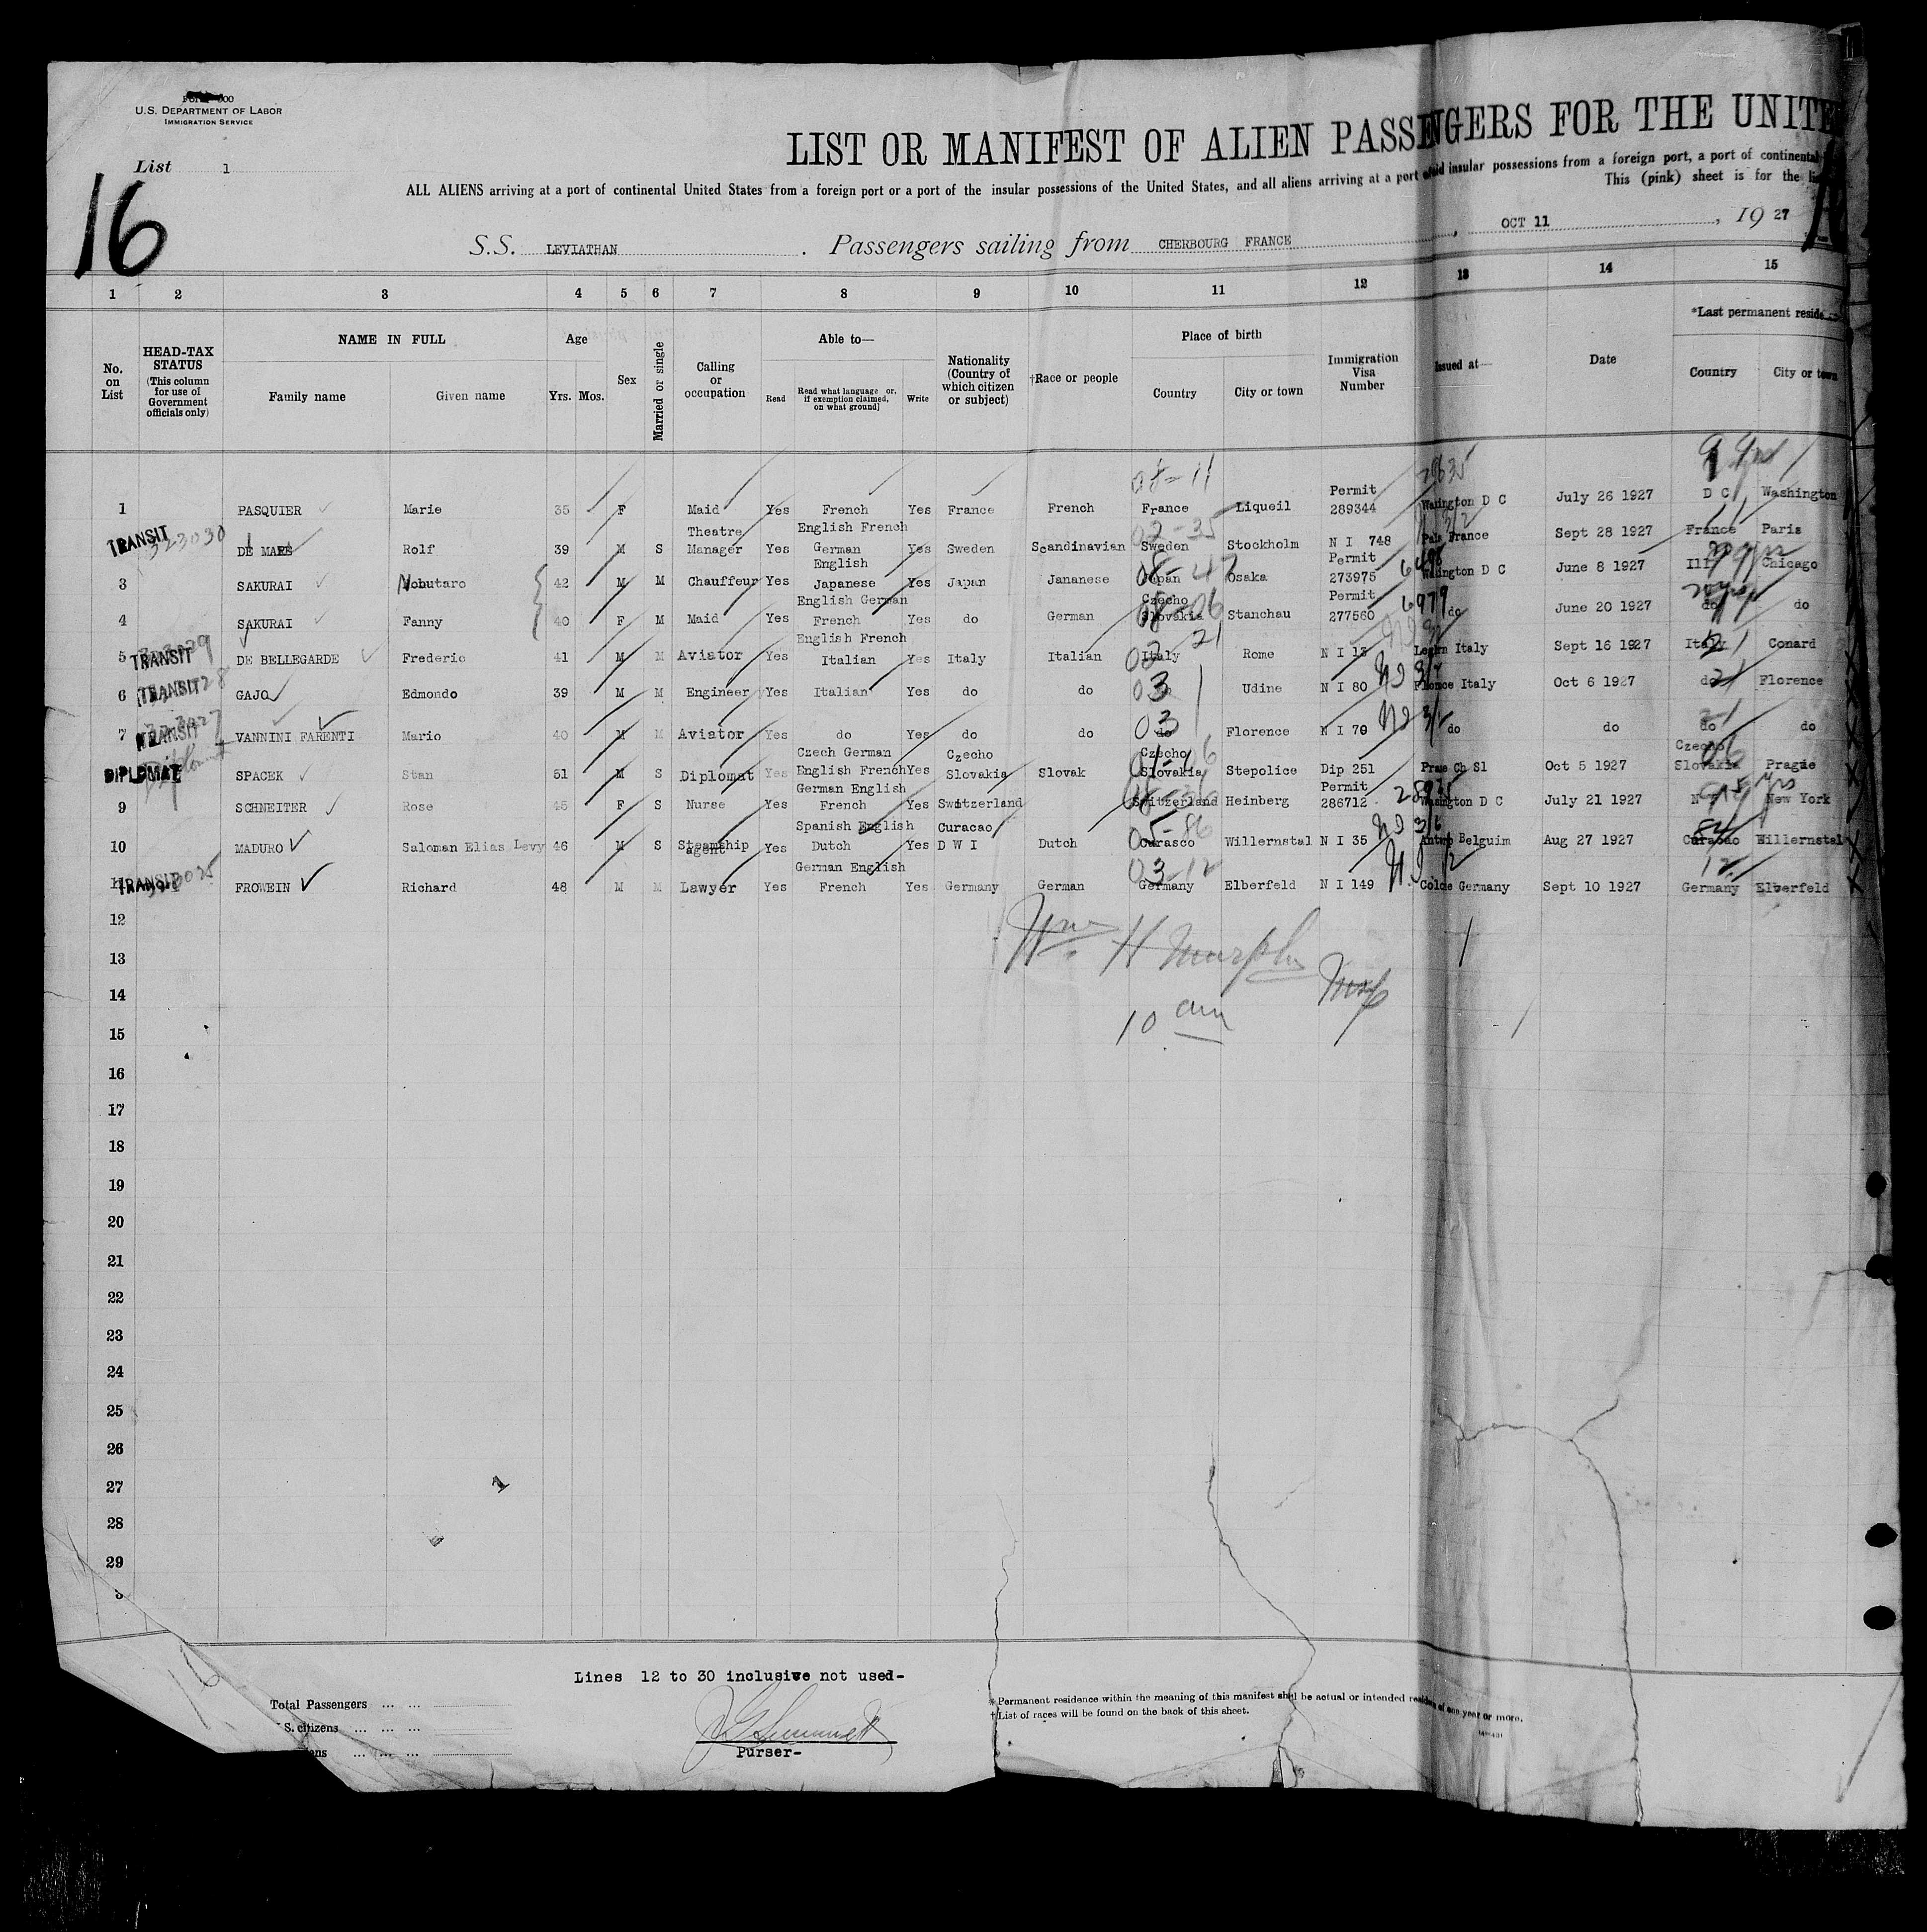 U.S. DEPARTMENT OF LABOR
IMMIGRATION SERVICE
List 1
16
LIST OR MANIFEST OF ALIEN PASSENGERS FOR THE UNITE
ALL ALIENS arriving at a port of continental United States from a foreign port or a port of the insular possessions of the United States, and all aliens arriving at a port of said insular possessions from a foreign port, a port of continental
This (pink) sheet is for the
S.S. LEVIATHAN . Passengers sailing from CHERBOURG FRANCE , OCT 11 , 19 27
1 2 3 4 5 6 7 8 9 10 11 12 13 14 15
No. on List
HEAD-TAX STATUS (This column for use of Government officials only)
NAME IN FULL
Family name Given name
Age
Yrs. Mos.
Sex
Married or single
Calling or occupation
Able to—
Read
Read what language or, if exemption claimed, on what ground]
Write
Nationality (Country of which citizen or subject)
†Race or people
Place of birth
Country City or town
Immigration Visa Number
Issued at—
Date
*Last permanent reside
Country City or town
1 PASQUIER Marie 35 F Maid Yes French Yes France French 08-11 France Liqueil Permit 289344 D C July 26 1927 D C Washington
TRANSIT 323030 DE MARE Rolf 39 M S Theatre Manager Yes English French German Yes Sweden Scandinavian Sweden Stockholm N I 748 France Sept 28 1927 France Paris
3 SAKURAI Nobutaro 42 M M Chauffeur Yes English Japanese Yes Japan Jananese Japan Osaka Permit 273975 D C June 8 1927 Ill Chicago
4 SAKURAI Fanny 40 F M Maid Yes English German French Yes do German Czecho Slovakia Stanchau Permit 277560 6979 do June 20 1927 do do
5 TRANSIT DE BELLEGARDE Frederic 41 M M Aviator Yes English French Italian Yes Italy Italian Italy Rome N I 13 Italy Sept 16 1927 Italy Conard
6 TRANSIT GAJO Edmondo 39 M M Engineer Yes Italian Yes do do 03 Udine N I 80 Italy Oct 6 1927 do Florence
7 TRANSIT VANNINI PARENTI Mario 40 M M Aviator Yes do Yes do do 03 do Florence N I 79 do do do do
DIPLOMAT SPACEK Stan 51 M S Diplomat Yes Czech German English French Yes Czecho Slovakia Slovak Czecho Slovakia Stepolice Dip 251 Ch Sl Oct 5 1927 Czecho Slovakia Prague
9 SCHNEITER Rose 45 F S Nurse Yes German English French Yes Switzerland Switzerland Heinberg Permit 286712 D C July 21 1927 N Y New York
10 MADURO Saloman Elias Levy 46 M S Steamship agent Yes Spanish English Dutch Yes Curacao D W I Dutch Curasco Willernstal N I 35 Belguim Aug 27 1927 Curacao Willernstal
11 TRANSIT FROWEIN Richard 48 M M Lawyer Yes German English French Yes Germany German 03-12 Germany Elberfeld N I 149 Germany Sept 10 1927 Germany Elberfeld
12
Wm H Murphy
13
14
Insp
10 am
15
16
17
18
19
20
21
22
23
24
25
26
27
28
29
Lines 12 to 30 inclusive not used-
Total Passengers ... ...
S. citizens ... ... ...
... ... ...
Purser-
*Permanent residence within the meaning of this manifest shall be actual or intended residence of one year or more.
†List of races will be found on the back of this sheet.